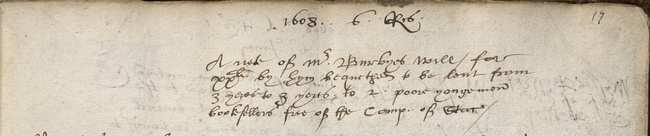 1608. 6. Re͡s. 17
A note of Mr. Burbyes Will / for
xxli by him bequethed to be lent from
3 yeres to 3 yeres to 2. poore yongemen
booksellers free of the Comp. of Stac /